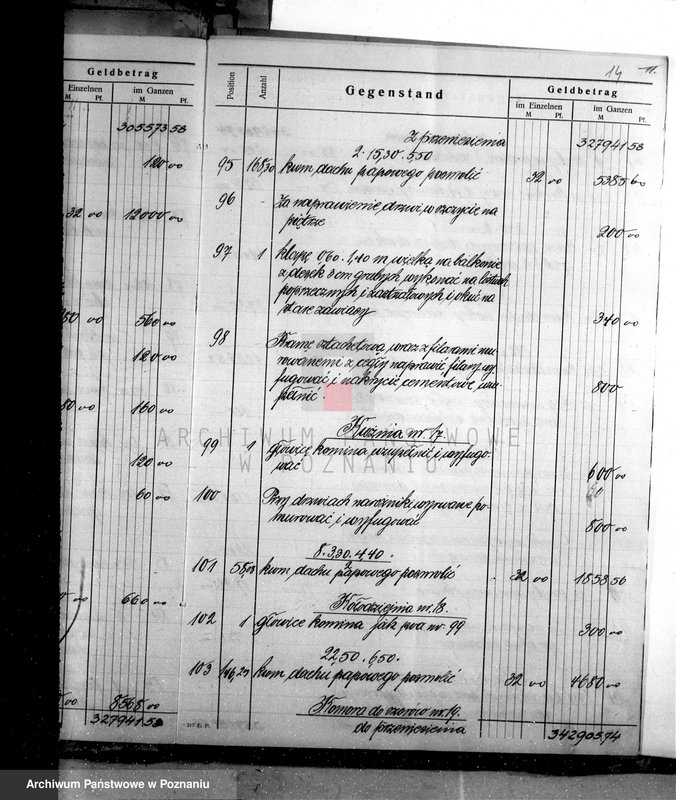 Geldbetrag
Einzelnen im Ganzen
M Pf. M Pf.
305573 58
120 00
32 00 12000 00
50 00 560 00
120 00
160 00
120 00
60 00
660 00
00 8568 00
327941 58
14 11.
Position Anzahl Gegenstand Geldbetrag
im Einzelnen im Ganzen
M Pf. M Pf.
Z przeniesienia 327941 58
2·15,30·5,50
95 168,30 kwm. dachu papowego posmolić 32 00 5385 60
96 Za naprawienie drzwi w szczycie na
piętrze 200 00
97 1 klapę 0,60·1,40 m wielką na balkonie
z desek 3 cm grubych wykonać na listwach
poprzecznych i okuć na
stare zawiasy 340 00
98 Bramę sztachetową wraz z filarami mu-
rowanemi z cegły naprawić, filary wy-
fugować i nakrycie cementowe uzu-
pełnić. 800
Kuźnia nr. 17.
99 1 głowicę komina uzupełnić i wyfugo-
wać 600 00
100 Przy drzwiach narożniki wyrwane po-
murować i wyfugować 800 00
101 58,08 kwm. dachu papowego posmolić 32 00 1858 56
Kołodziejnia nr. 18.
102 1 głowicę komina jak poz. nr. 99 300 00
22,50·6,50.
103 146,25 kwm. dachu papowego posmolić 32 00 4680 00
Komora do szorów nr. 19.
do przeniesienia 342905,74
ARCHIWUM PAŃSTWOWE
W POZNANIU
Archiwum Państwowe w Poznaniu